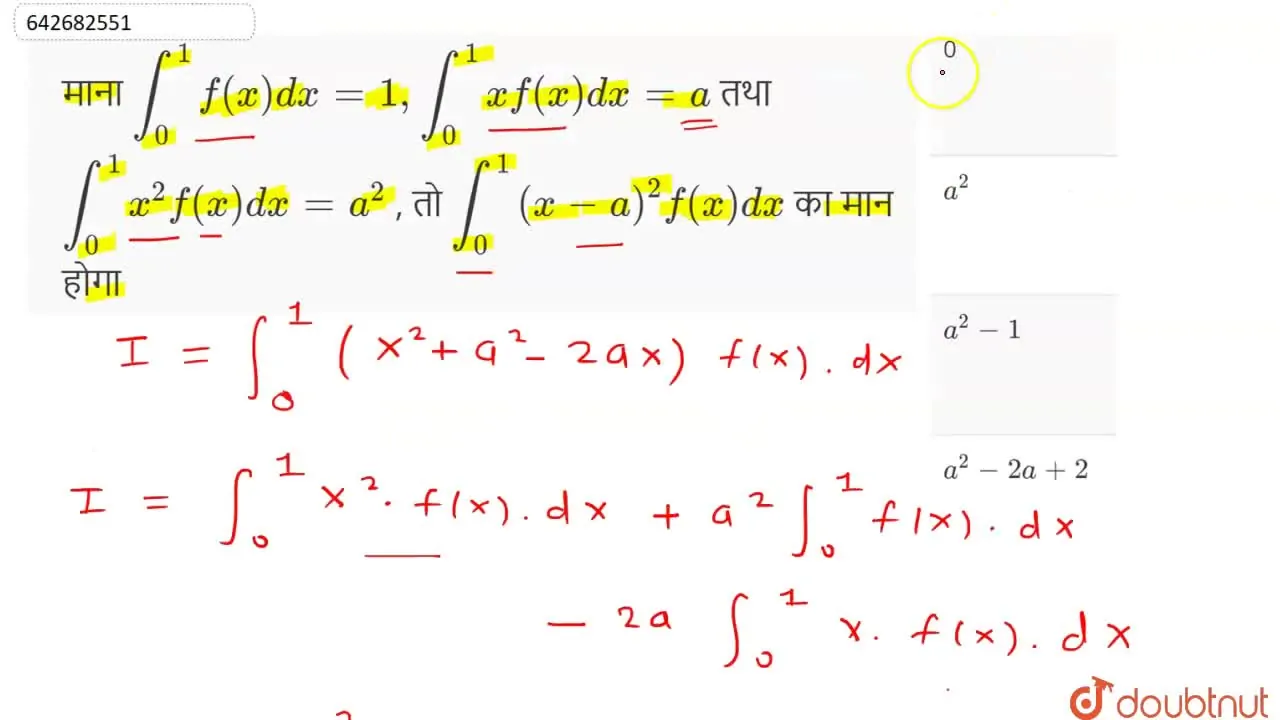 642682551
माना ∫₀¹ f(x)dx = 1, ∫₀¹ xf(x)dx = a तथा
∫₀¹ x²f(x)dx = a² , तो ∫₀¹ (x − a)²f(x)dx का मान
होगा
0
a²
a² − 1
a² − 2a + 2
I = ∫₀¹ (x² + a² − 2ax) f(x) . dx
I = ∫₀¹ x² . f(x) . dx + a² ∫₀¹ f(x) . dx
− 2a ∫₀¹ x . f(x) . dx
doubtnut